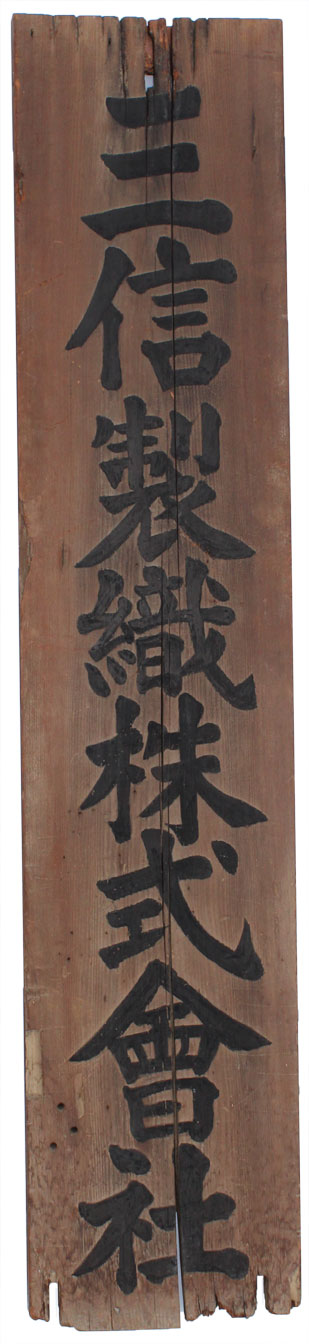 三信製織株式會社